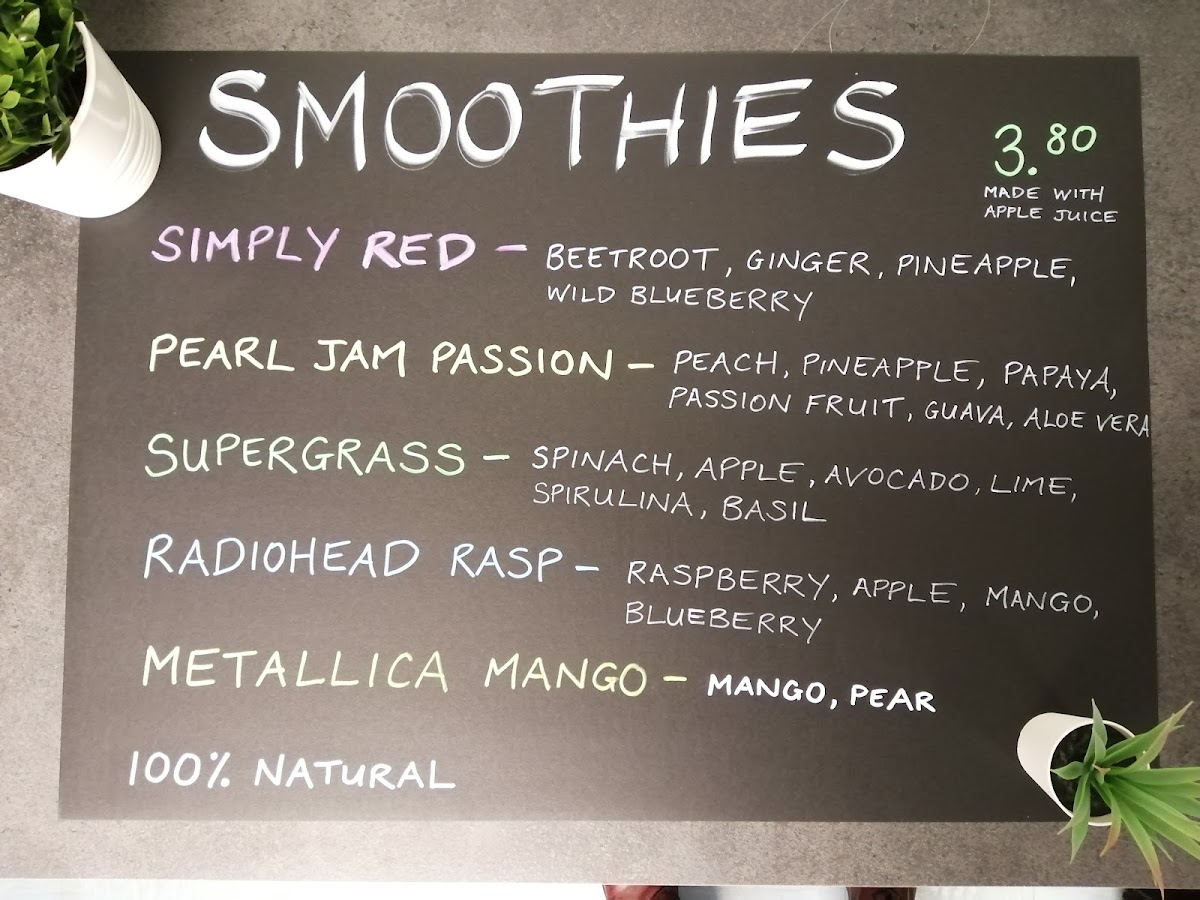 SMOOTHIES
3.80
MADE WITH
APPLE JUICE
SIMPLY RED - BEETROOT, GINGER, PINEAPPLE,
WILD BLUEBERRY
PEARL JAM PASSION - PEACH, PINEAPPLE, PAPAYA,
PASSION FRUIT, GUAVA, ALOE VERA
SUPERGRASS - SPINACH, APPLE, AVOCADO, LIME,
SPIRULINA, BASIL
RADIOHEAD RASP - RASPBERRY, APPLE, MANGO,
BLUEBERRY
METALLICA MANGO - MANGO, PEAR
100% NATURAL